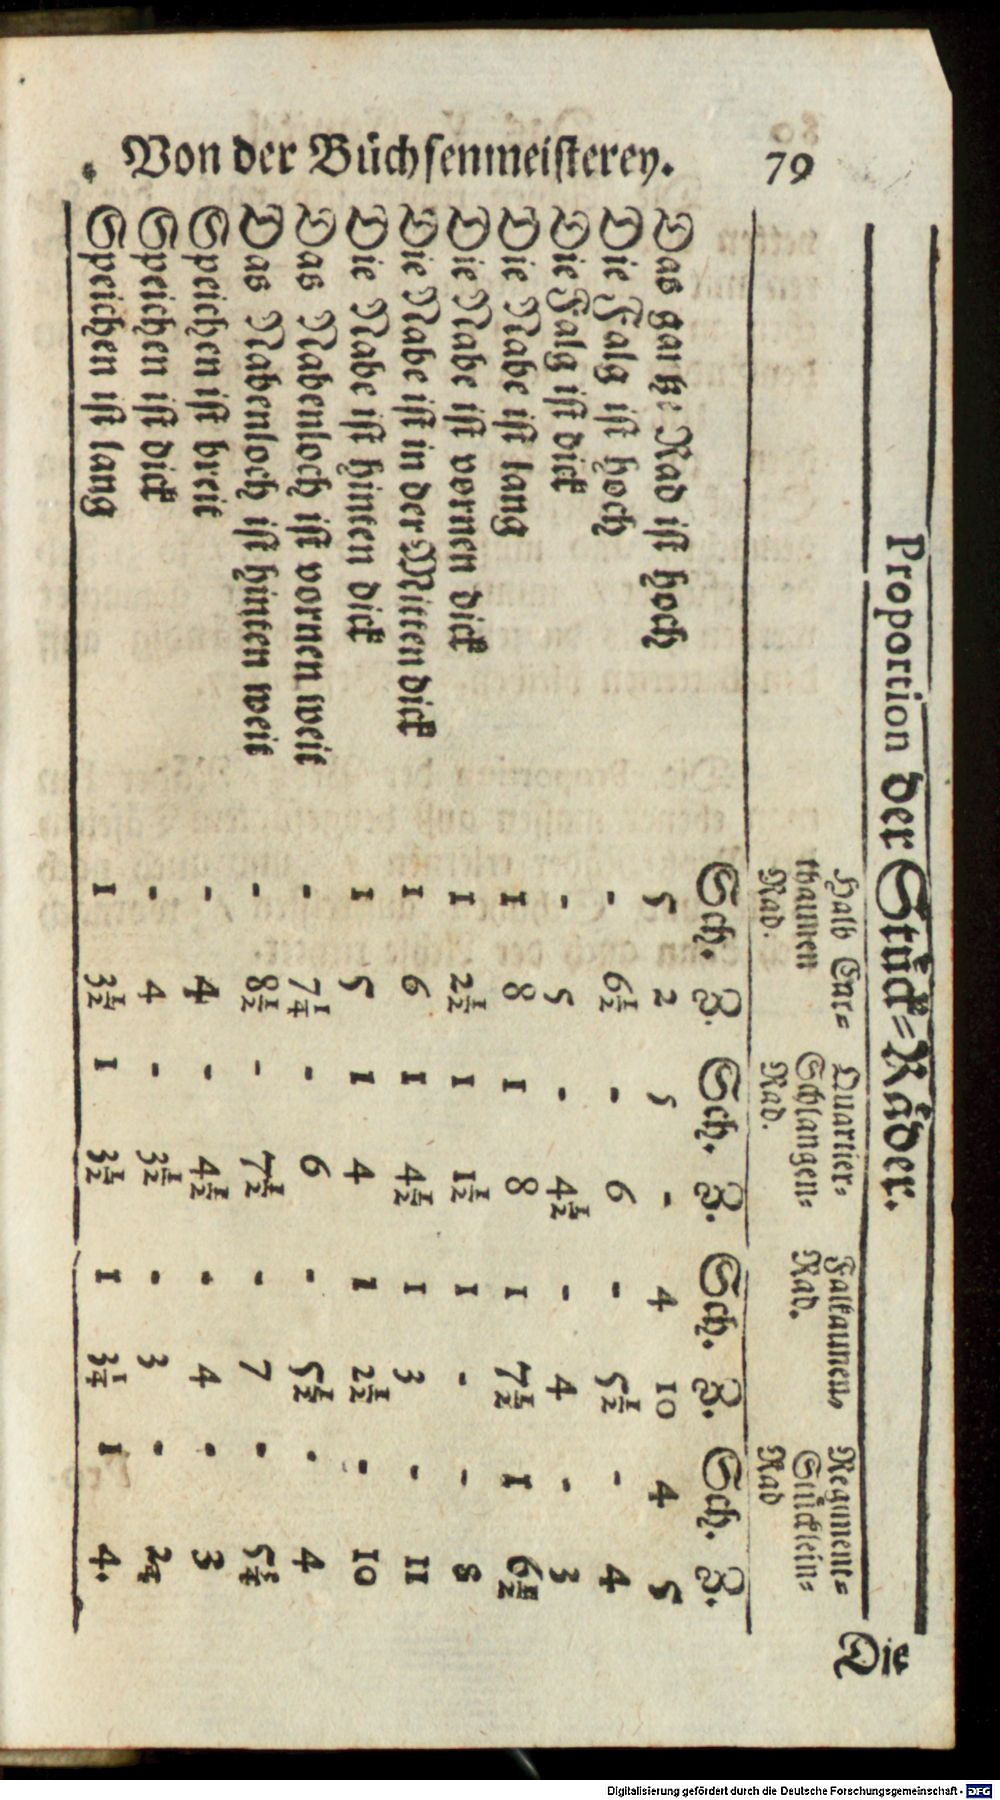 Von der Büchsenmeisterey. 79
Proportion der Stuͤck=Raͤder.
Halb Car= Quartier= Falkaunen= Regiment=
thaunen Schlangen= Rad. Stuͤcklein=
Rad. Rad. Rad
Sch. Z. Sch. Z. Sch. Z. Sch. Z.
Das gantze Rad ist hoch 5 2 5 - 4 10 4 5
Die Falg ist hoch - 6 1/2 - 6 - 5 1/2 - 4
Die Falg ist dick - 5 - 4 1/2 - 4 - 3
Die Nabe ist lang 1 8 1 8 1 7 1/2 1 6 1/2
Die Nabe ist vornen dick 1 2 1/2 1 1 1/2 1 - - 8
Die Nabe ist in der Mitten dick 1 6 1 4 1/2 1 3 - 11
Die Nabe ist hinten dick 1 5 1 4 1 2 1/2 - 10
Das Nabenloch ist vornen weit - 7 1/4 - 6 - 5 1/2 - 4
Das Nabenloch ist hinten weit - 8 1/2 - 7 1/2 - 7 - 5
Speichen ist breit - 4 - 4 1/2 - 4 - 3
Speichen ist dick - 4 - 3 1/2 - 3 - 2
Speichen ist lang 1 3 1/2 1 3 1/2 1 3 1/4 1 4.
Die
Digitalisierung gefördert durch die Deutsche Forschungsgemeinschaft - DFG